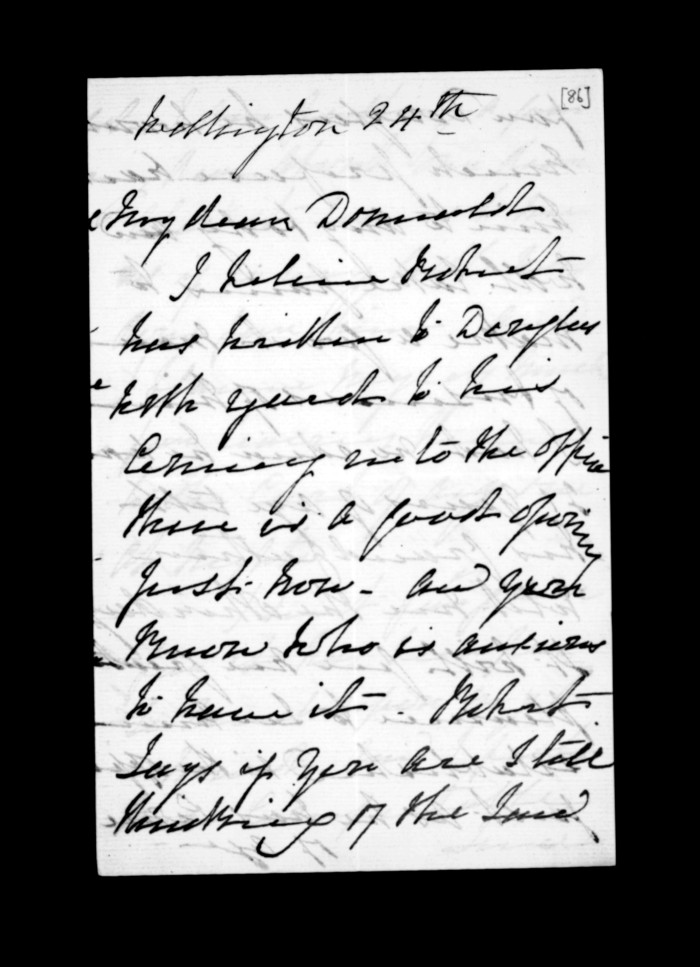 [86]
Wellington 24th
My dear Donald
I believe Robert
has written to Douglas
with regard to his
Coming into the office
there is a good opening
just now - and you
know who is anxious
to have it. Robert
Says if you are Still
thinking of the Law